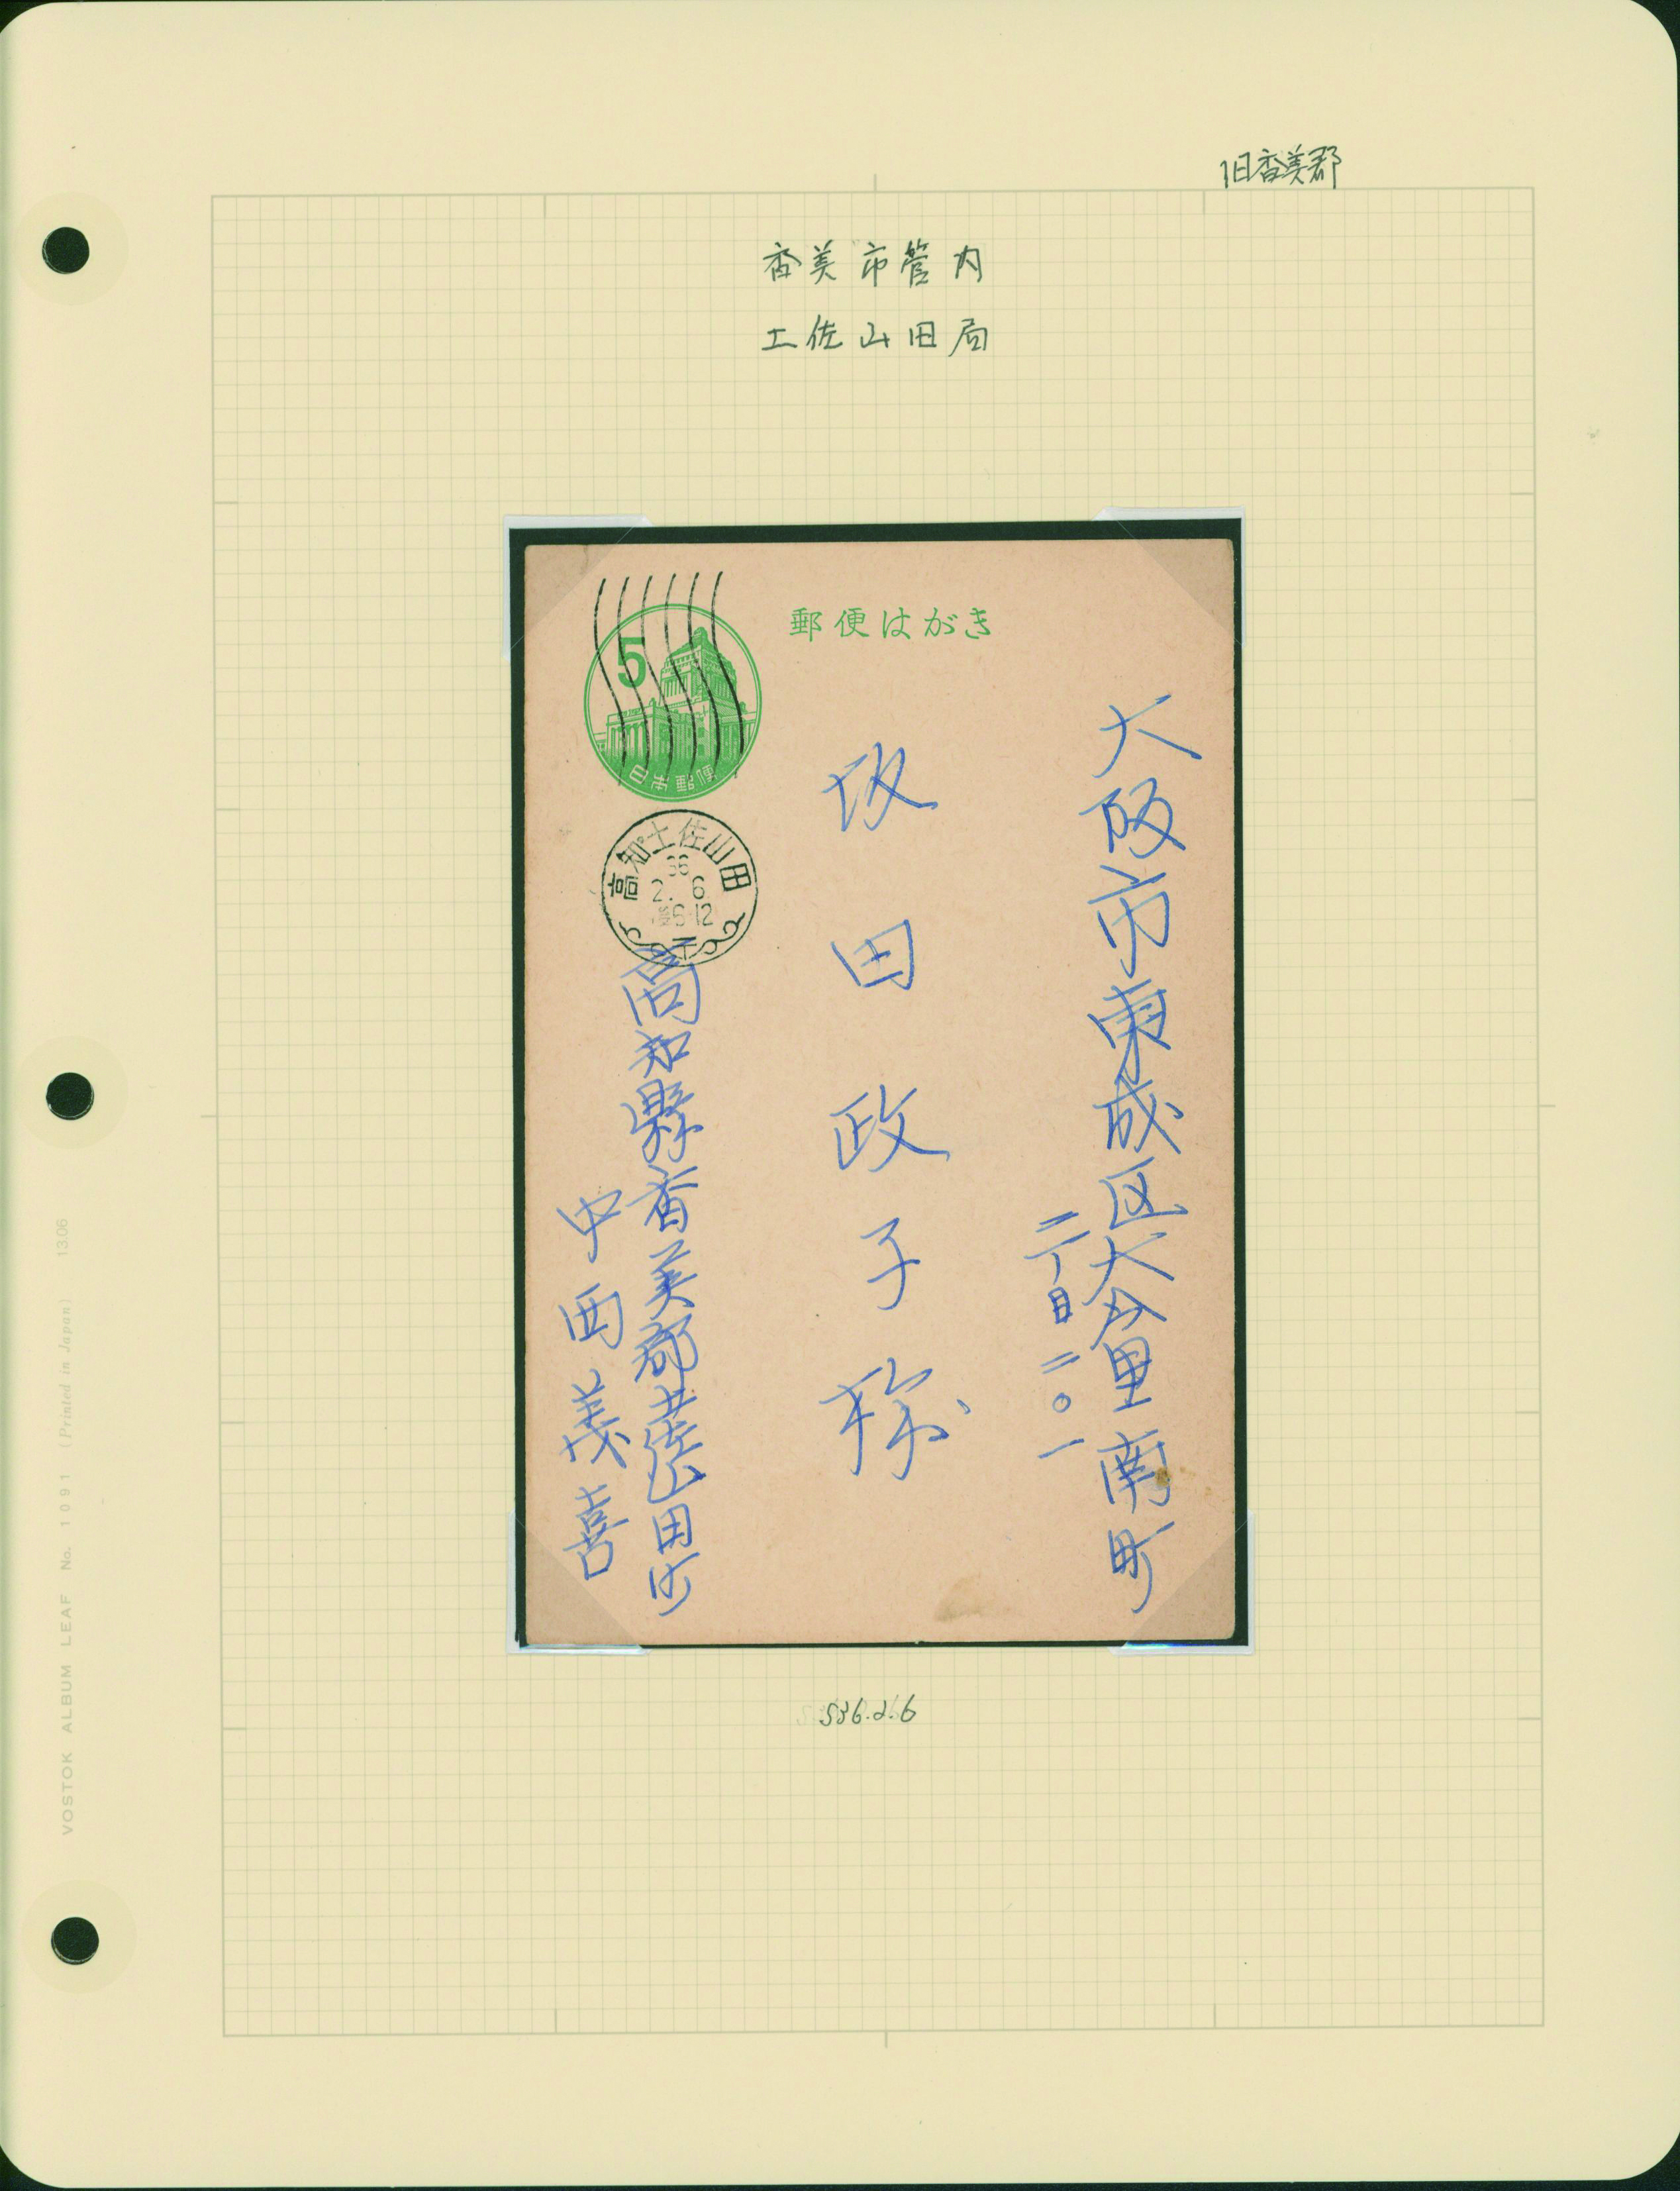 旧香美郡
香美市管内
土佐山田局
郵便はがき
5
日本郵便
高知土佐山田
36
2. 6
6-12
大阪市東成区大今里南町
二丁目二〇一
坂田政子様
高知縣香美郡土佐山田町
中西義喜
S36.2.6
VOSTOK ALBUM LEAF No. 1091 (Printed in Japan) 13.06